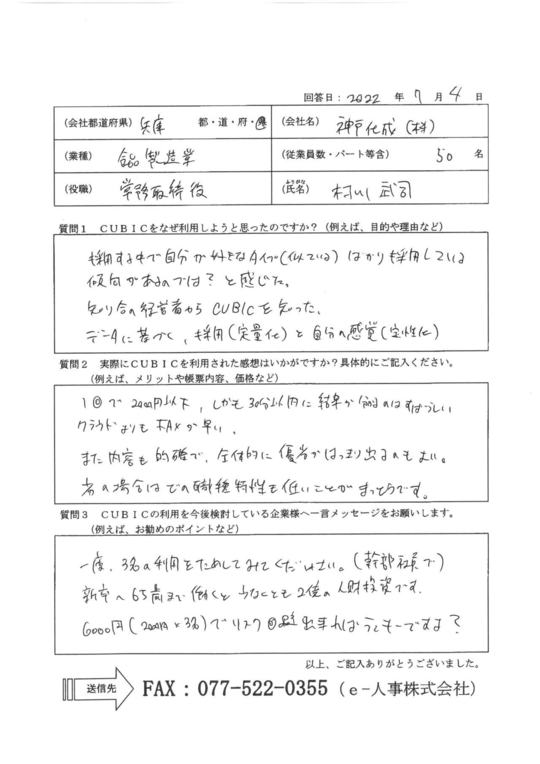 回答日：2022 年 7 月 4 日
（会社都道府県） 兵庫 都・道・府・県
（会社名） 神戸化成（株）
（業種） 食品製造業
（従業員数・パート等含） 50 名
（役職） 常務取締役
（氏名） 村川 武司
質問１ ＣＵＢＩＣをなぜ利用しようと思ったのですか？（例えば、目的や理由など）
採用する中で自分が好きなタイプ(似ている)ばかり採用している
傾向があるのでは？と感じた。
知り合の経営者から CUBICを知った。
データに基づく、採用(定量化)と自分の感覚(定性化)
質問２ 実際にＣＵＢＩＣを利用された感想はいかがですか？具体的にご記入ください。
（例えば、メリットや帳票内容、価格など）
1回で2000円以下、しかも30分以内に結果が分るのはすばらしい
クラウドよりもFAXが早い。
また内容も的確で、全体的に優劣がはっきり出るのもよい。
劣の場合はどの職種特性も低いことがまっとうです。
質問３ ＣＵＢＩＣの利用を今後検討している企業様へ一言メッセージをお願いします。
（例えば、お勧めのポイントなど）
一度、3名の利用をためしてみてくださいませ。(幹部社員で)
新卒〜65歳まで働くと少なくとも2億の人財投資です。
6000円(2000円×3名)でリスク回避出来ればラッキーですよ？
以上、ご記入ありがとうございました。
送信先 FAX：077-522-0355（e-人事株式会社）